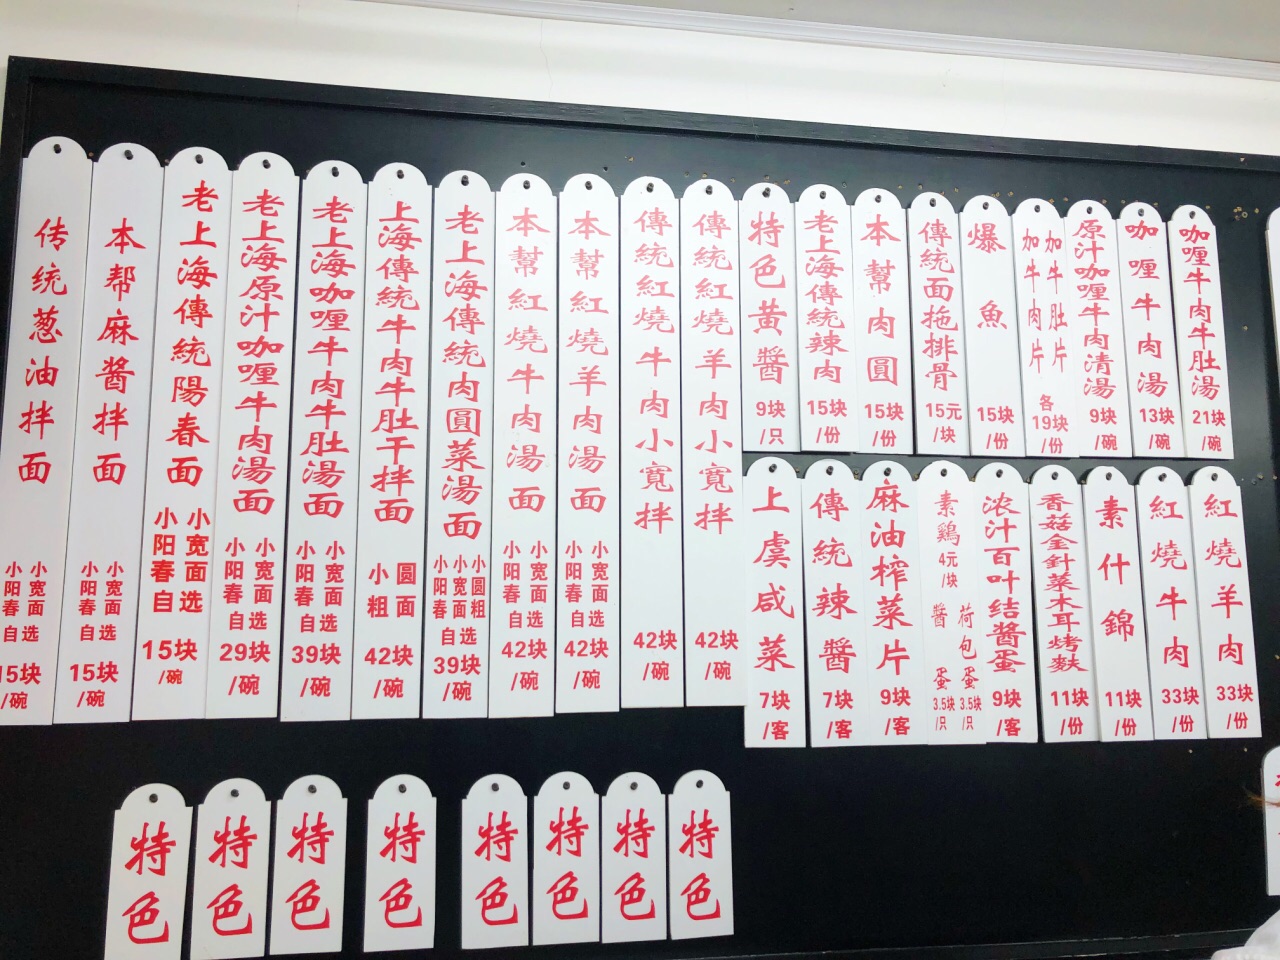 传统葱油拌面
小阳春 小宽面
自选
15块
/碗
本帮麻醬拌面
小阳春 小宽面
自选
15块
/碗
老上海傳統陽春面
小阳春 小宽面
自选
15块
/碗
老上海原汁咖喱牛肉湯面
小阳春 小宽面
自选
29块
/碗
老上海咖喱牛肉牛肚湯面
小阳春 小宽面
自选
39块
/碗
上海傳統牛肉牛肚干拌面
小粗 圆面
42块
/碗
老上海傳統肉圓菜湯面
小阳春 小宽面 小圆粗
自选
39块
/碗
本幫紅燒牛肉湯面
小阳春 小宽面
自选
42块
/碗
本幫紅燒羊肉湯面
小阳春 小宽面
自选
42块
/碗
傳統紅燒牛肉小寬拌
42块
/碗
傳統紅燒羊肉小寬拌
42块
/碗
特色黃醬
9块
/只
老上海傳統辣肉
15块
/份
本幫肉圓
15块
/份
傳統面拖排骨
15元
/块
爆魚
15块
/份
加牛肉片 加牛肚片
各
19块
/份
原汁咖喱牛肉清湯
9块
/碗
咖喱牛肉湯
13块
/碗
咖喱牛肉牛肚湯
21块
/碗
上虞咸菜
7块
/客
傳統辣醬
7块
/客
麻油榨菜片
9块
/客
素鷄
4元
/块
醬蛋
3.5块
/只
荷包蛋
3.5块
/只
浓汁百叶结醬蛋
9块
/客
香菇金針菜木耳烤麩
11块
/份
素什錦
11块
/份
紅燒牛肉
33块
/份
紅燒羊肉
33块
/份
特色
特色
特色
特色
特色
特色
特色
特色